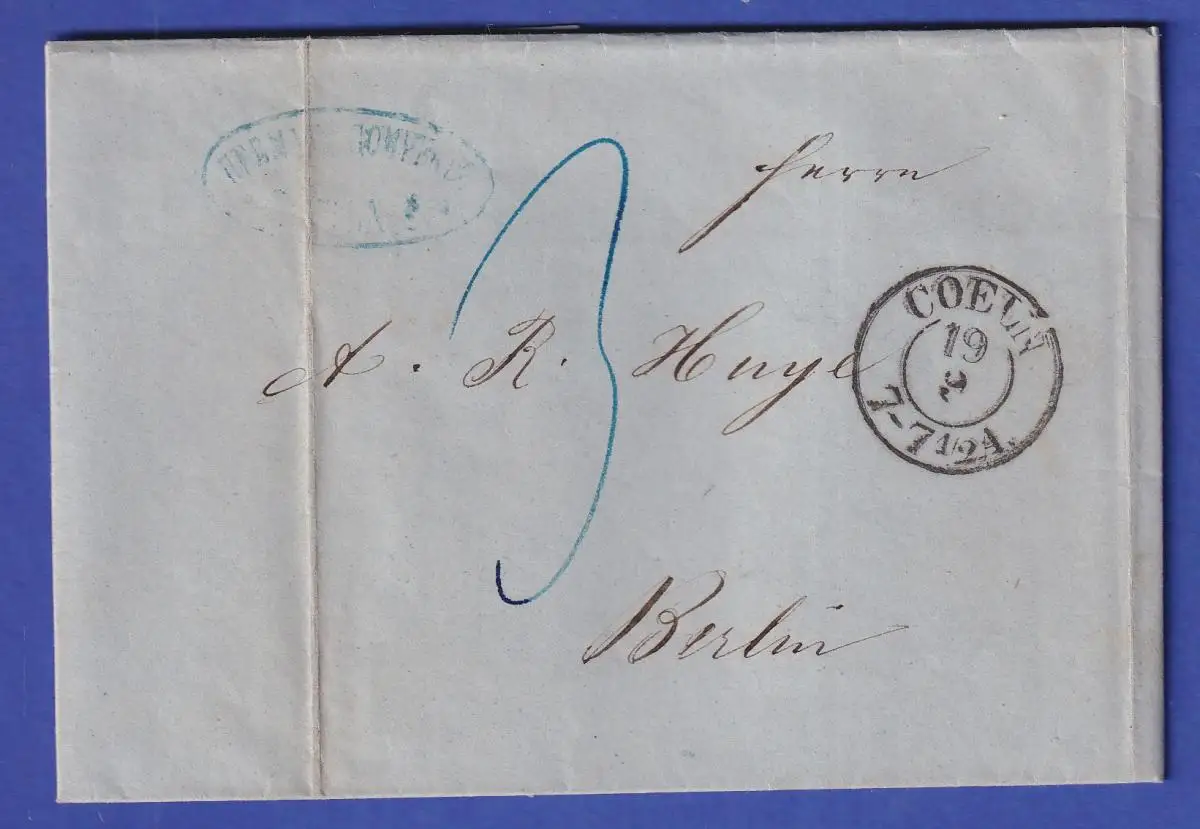 Herrn
3
A. R. Huyl
COELN
19
2
7-7 1/2 A.
Berlin